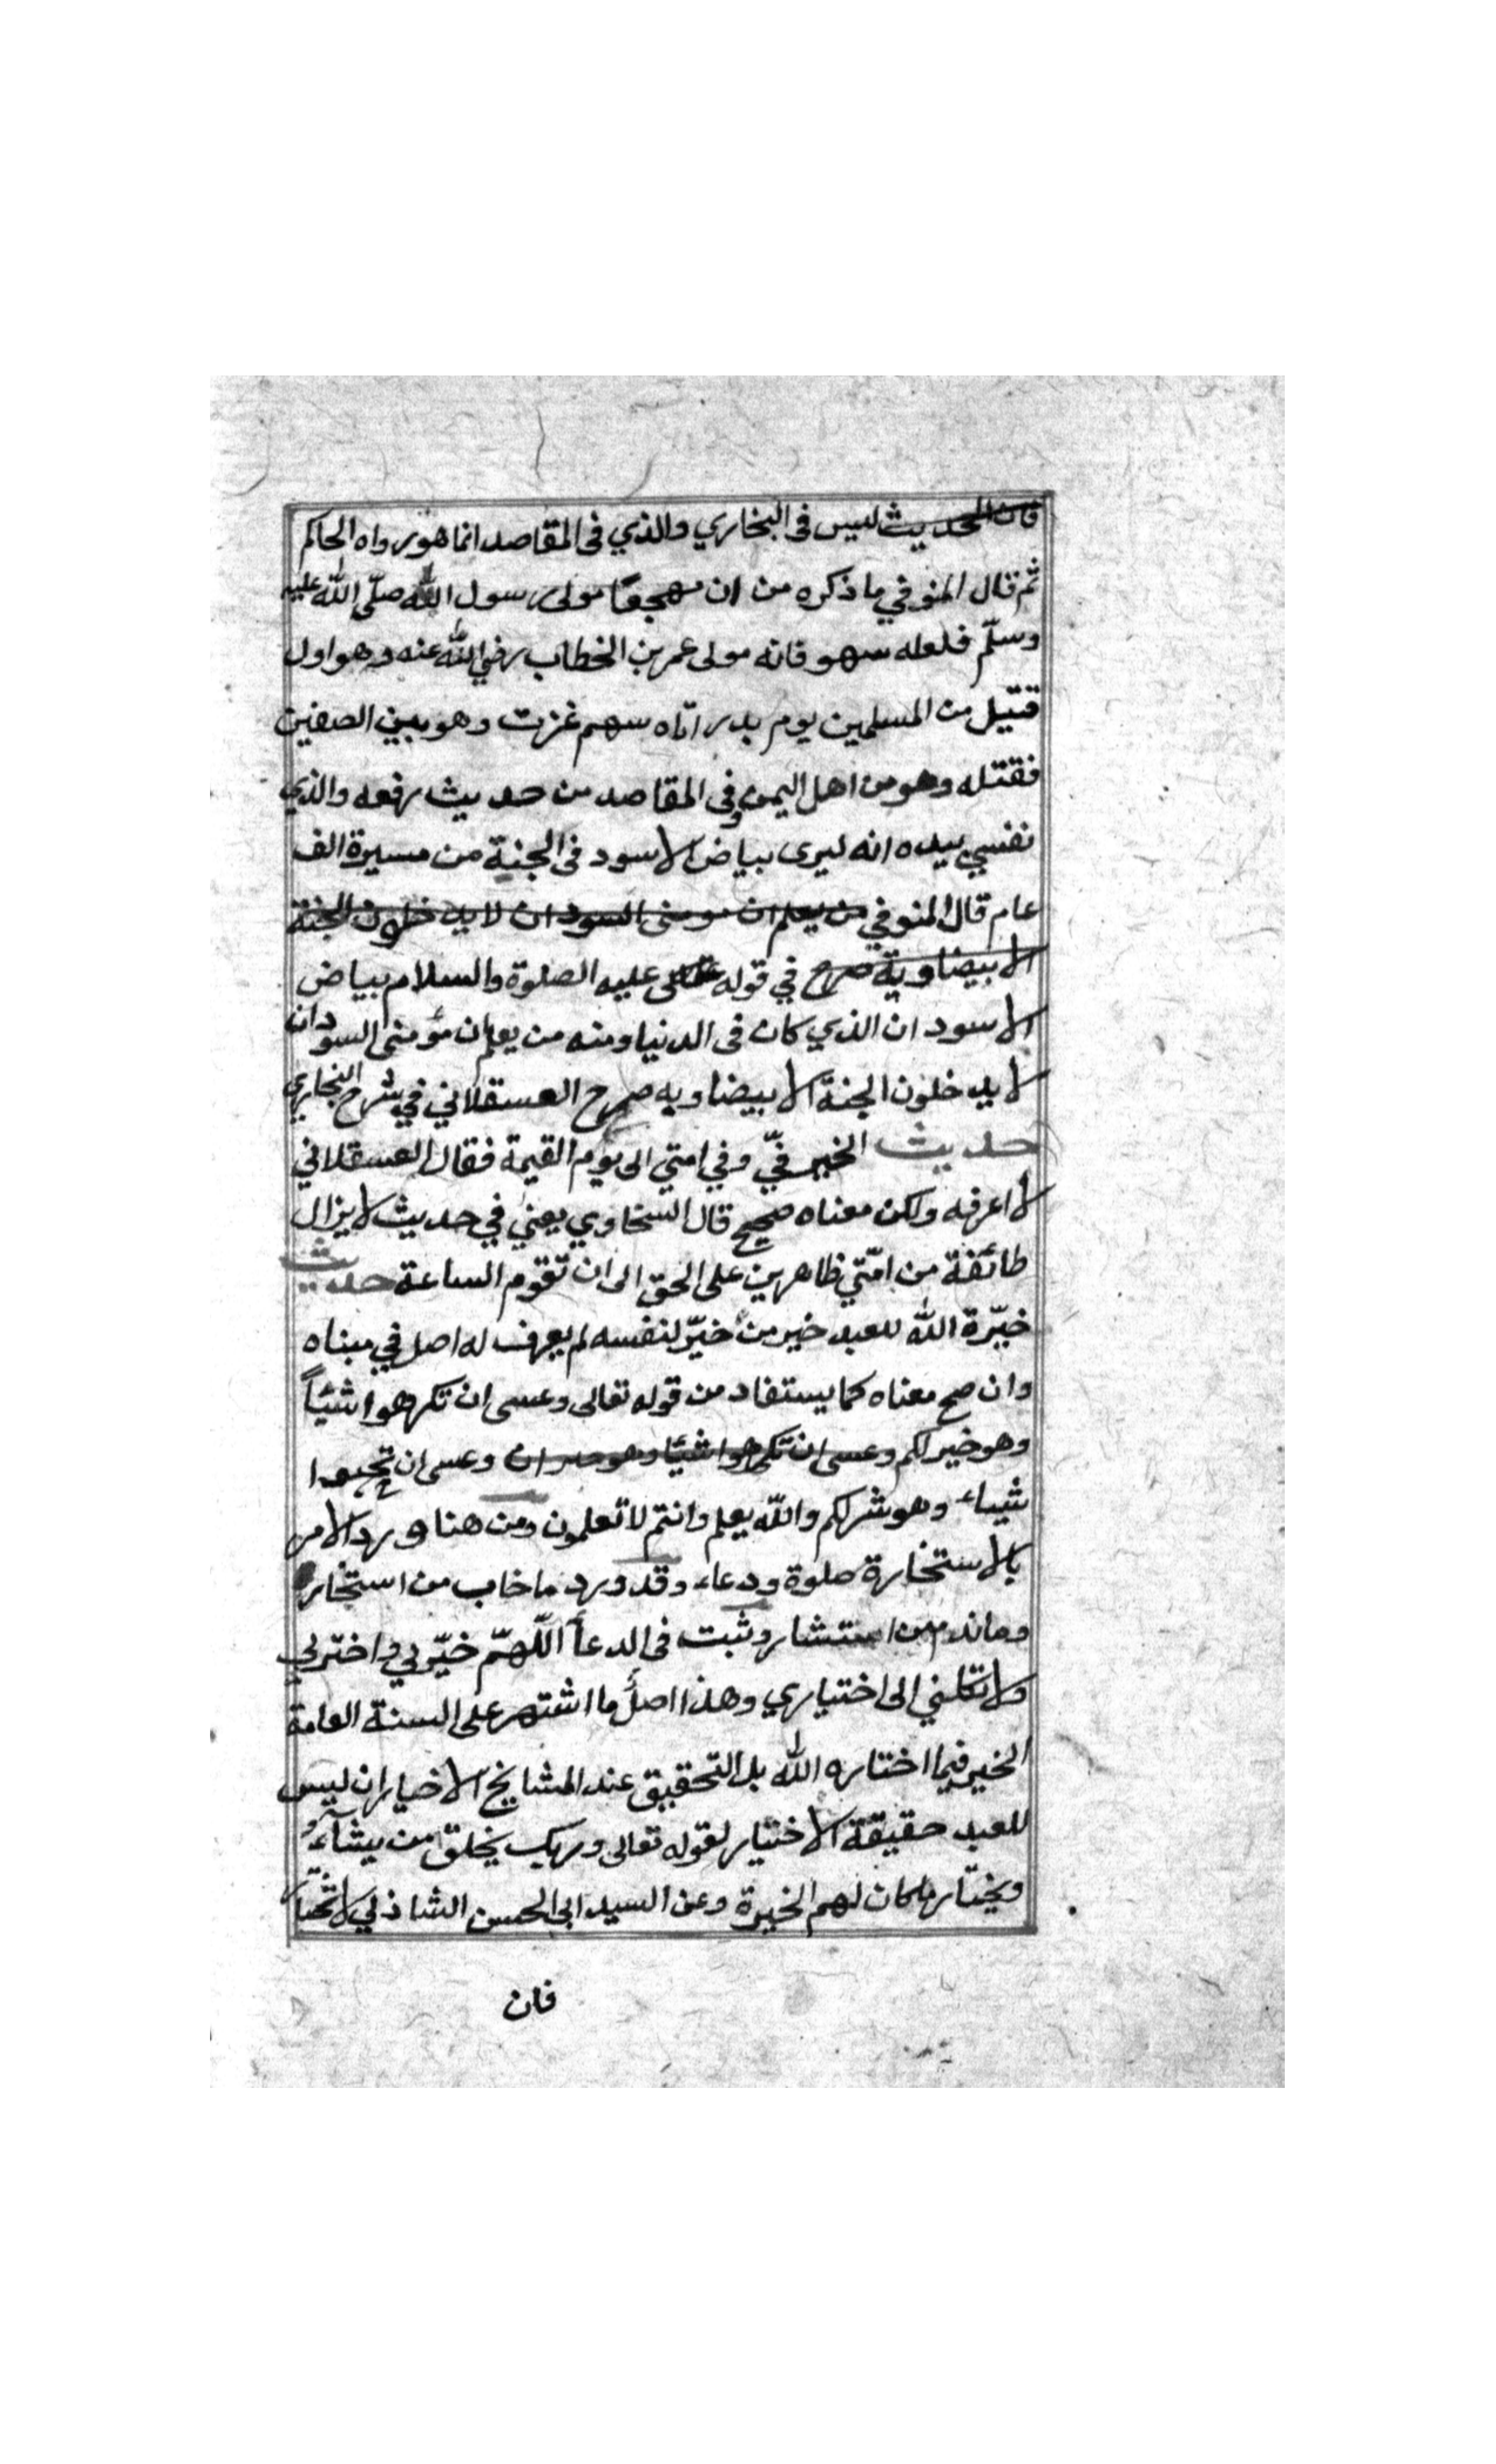 فان الحديث ليس فى البخاري والذي فى المقاصد انما هو رواه الحاكم
ثم قال المنوفي ما ذكره من ان مهجعًا مولى رسول الله صلّى الله عليه
وسلّم فلعله سهو فانه مولى عمر بن الخطاب رضي الله عنه وهو اول
قتيل من المسلمين يوم بدر اتاه سهم غرت وهو بين الصفين
فقتله وهو من اهل اليمن وفى المقاصد من حديث رفعه والذي
نفسي بيده انه ليرى بياض الاسود فى الجنة من مسيرة الف
عام قال المنوفي من يعلم ان مومنى السودان لا يدخلون الجنة
الا بيضا وبه صرح في قوله عليه الصلوة والسلام بياض
الاسود ان الذي كان فى الدنيا ومنه من يعلم ان مؤمنى السودان
لا يدخلون الجنة الا بيضا وبه صرح العسقلاني في شرح البخاري
حديث الخير فيّ وفي امتي الى يوم القيمة فقال العسقلاني
لا اعرفه ولكن معناه صحيح قال السخاوي يعني في حديث لا يزال
طائفة من امّتي ظاهرين على الحق الى ان تقوم الساعة حديث
خيّرة الله للعبد خير من خيّر لنفسه لم يعرف له اصل في مبناه
وان صح معناه كما يستفاد من قوله تعالى وعسى ان تكرهوا شيئاً
وهو خير لكم وعسى ان تكرهوا شيئا وهو خير ان وعسى ان تحبوا
شيياء وهو شر لكم والله يعلم وانتم لا تعلمون ومن هنا ورد الامر
بالاستخارة صلوة ودعاء وقد ورد ما خاب من استخار
وما ندم من استشار وثبت فى الدعأ اللّهمّ خيّر لي واختر لي
ولا تكلني الى اختياري وهذا اصل ما اشتهر على السنة العامة
الخير فيما اختاره الله بل التحقيق عند المشايخ الاخيار ان ليس
للعبد حقيقة الاختيار لقوله تعالى وربك يخلق من يشاء
ويختار ما كان لهم الخيرة وعن السيد ابى الحسن الشاذلي لا تختار
فان